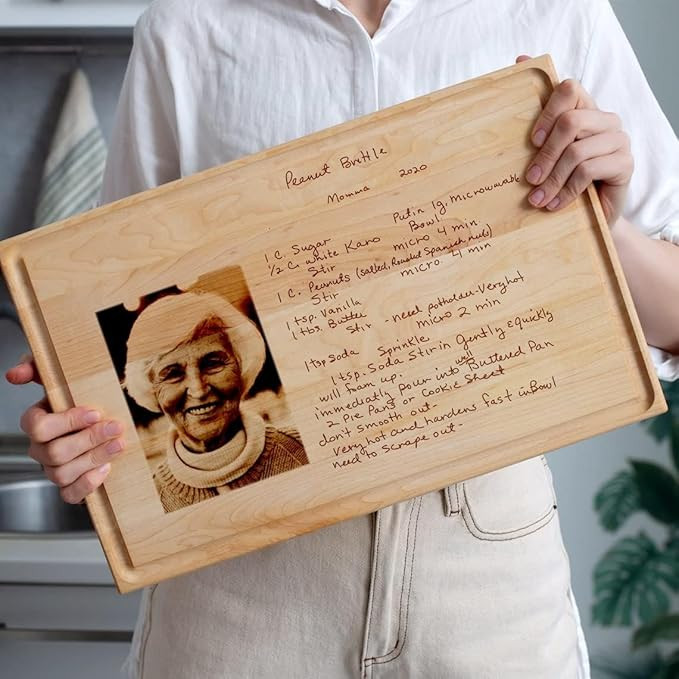 Peanut Brittle
Momma 2020
Put in lg. microwavable
Bowl
1 C. Sugar
1/2 C. white Karo
Stir micro 4 min.
1 C. Peanuts (salted, Roasted Spanish nuts)
Stir micro 4 min
1 tsp. Vanilla
1 tbs. Butter
Stir - need potholder-Veryhot
micro 2 min
1 tsp Soda Sprinkle
1 tsp. Soda Stir in Gently & quickly
will foam up.
well
immediatly pour into Buttered Pan
2 Pie Pans or Cookie Sheet
don't smooth out.
Very hot and hardens fast in Bowl
need to scrape out-